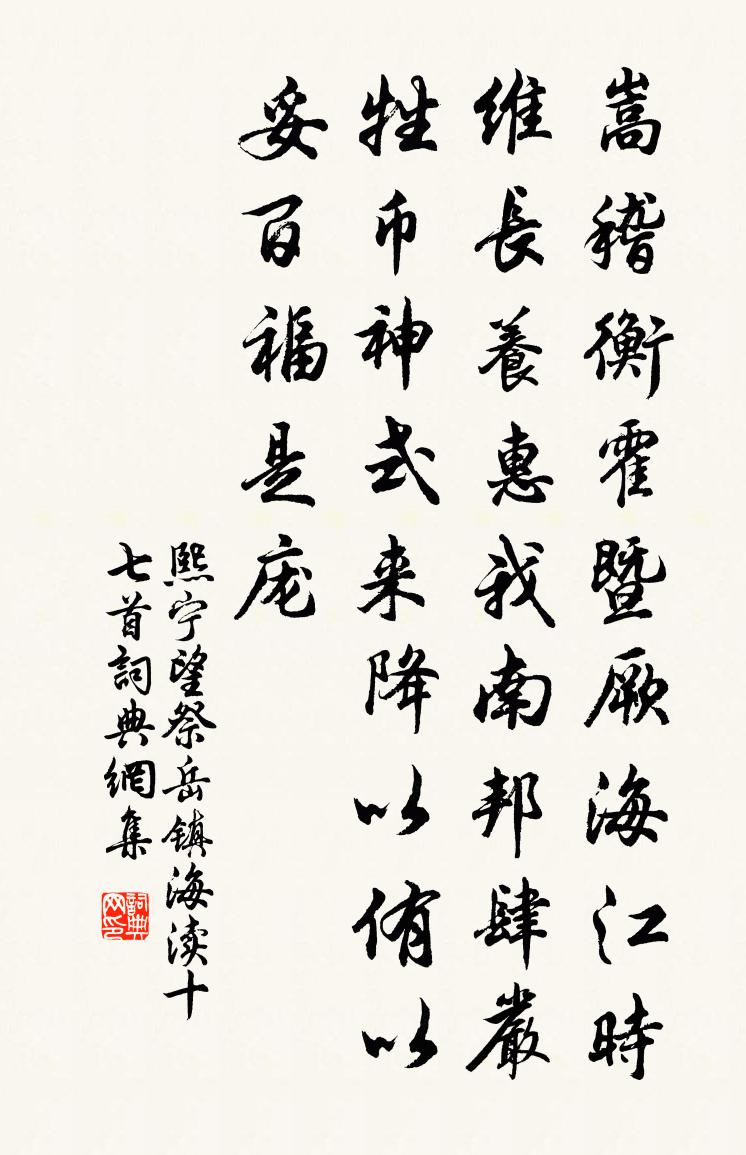 嵩稽衡霍暨厥海江時
維長養惠我南邦肆嚴
牲币神式来降以侑以
妥百福是庬
熙宁望祭岳镇海渎十
七首詞典網集
詞典网印